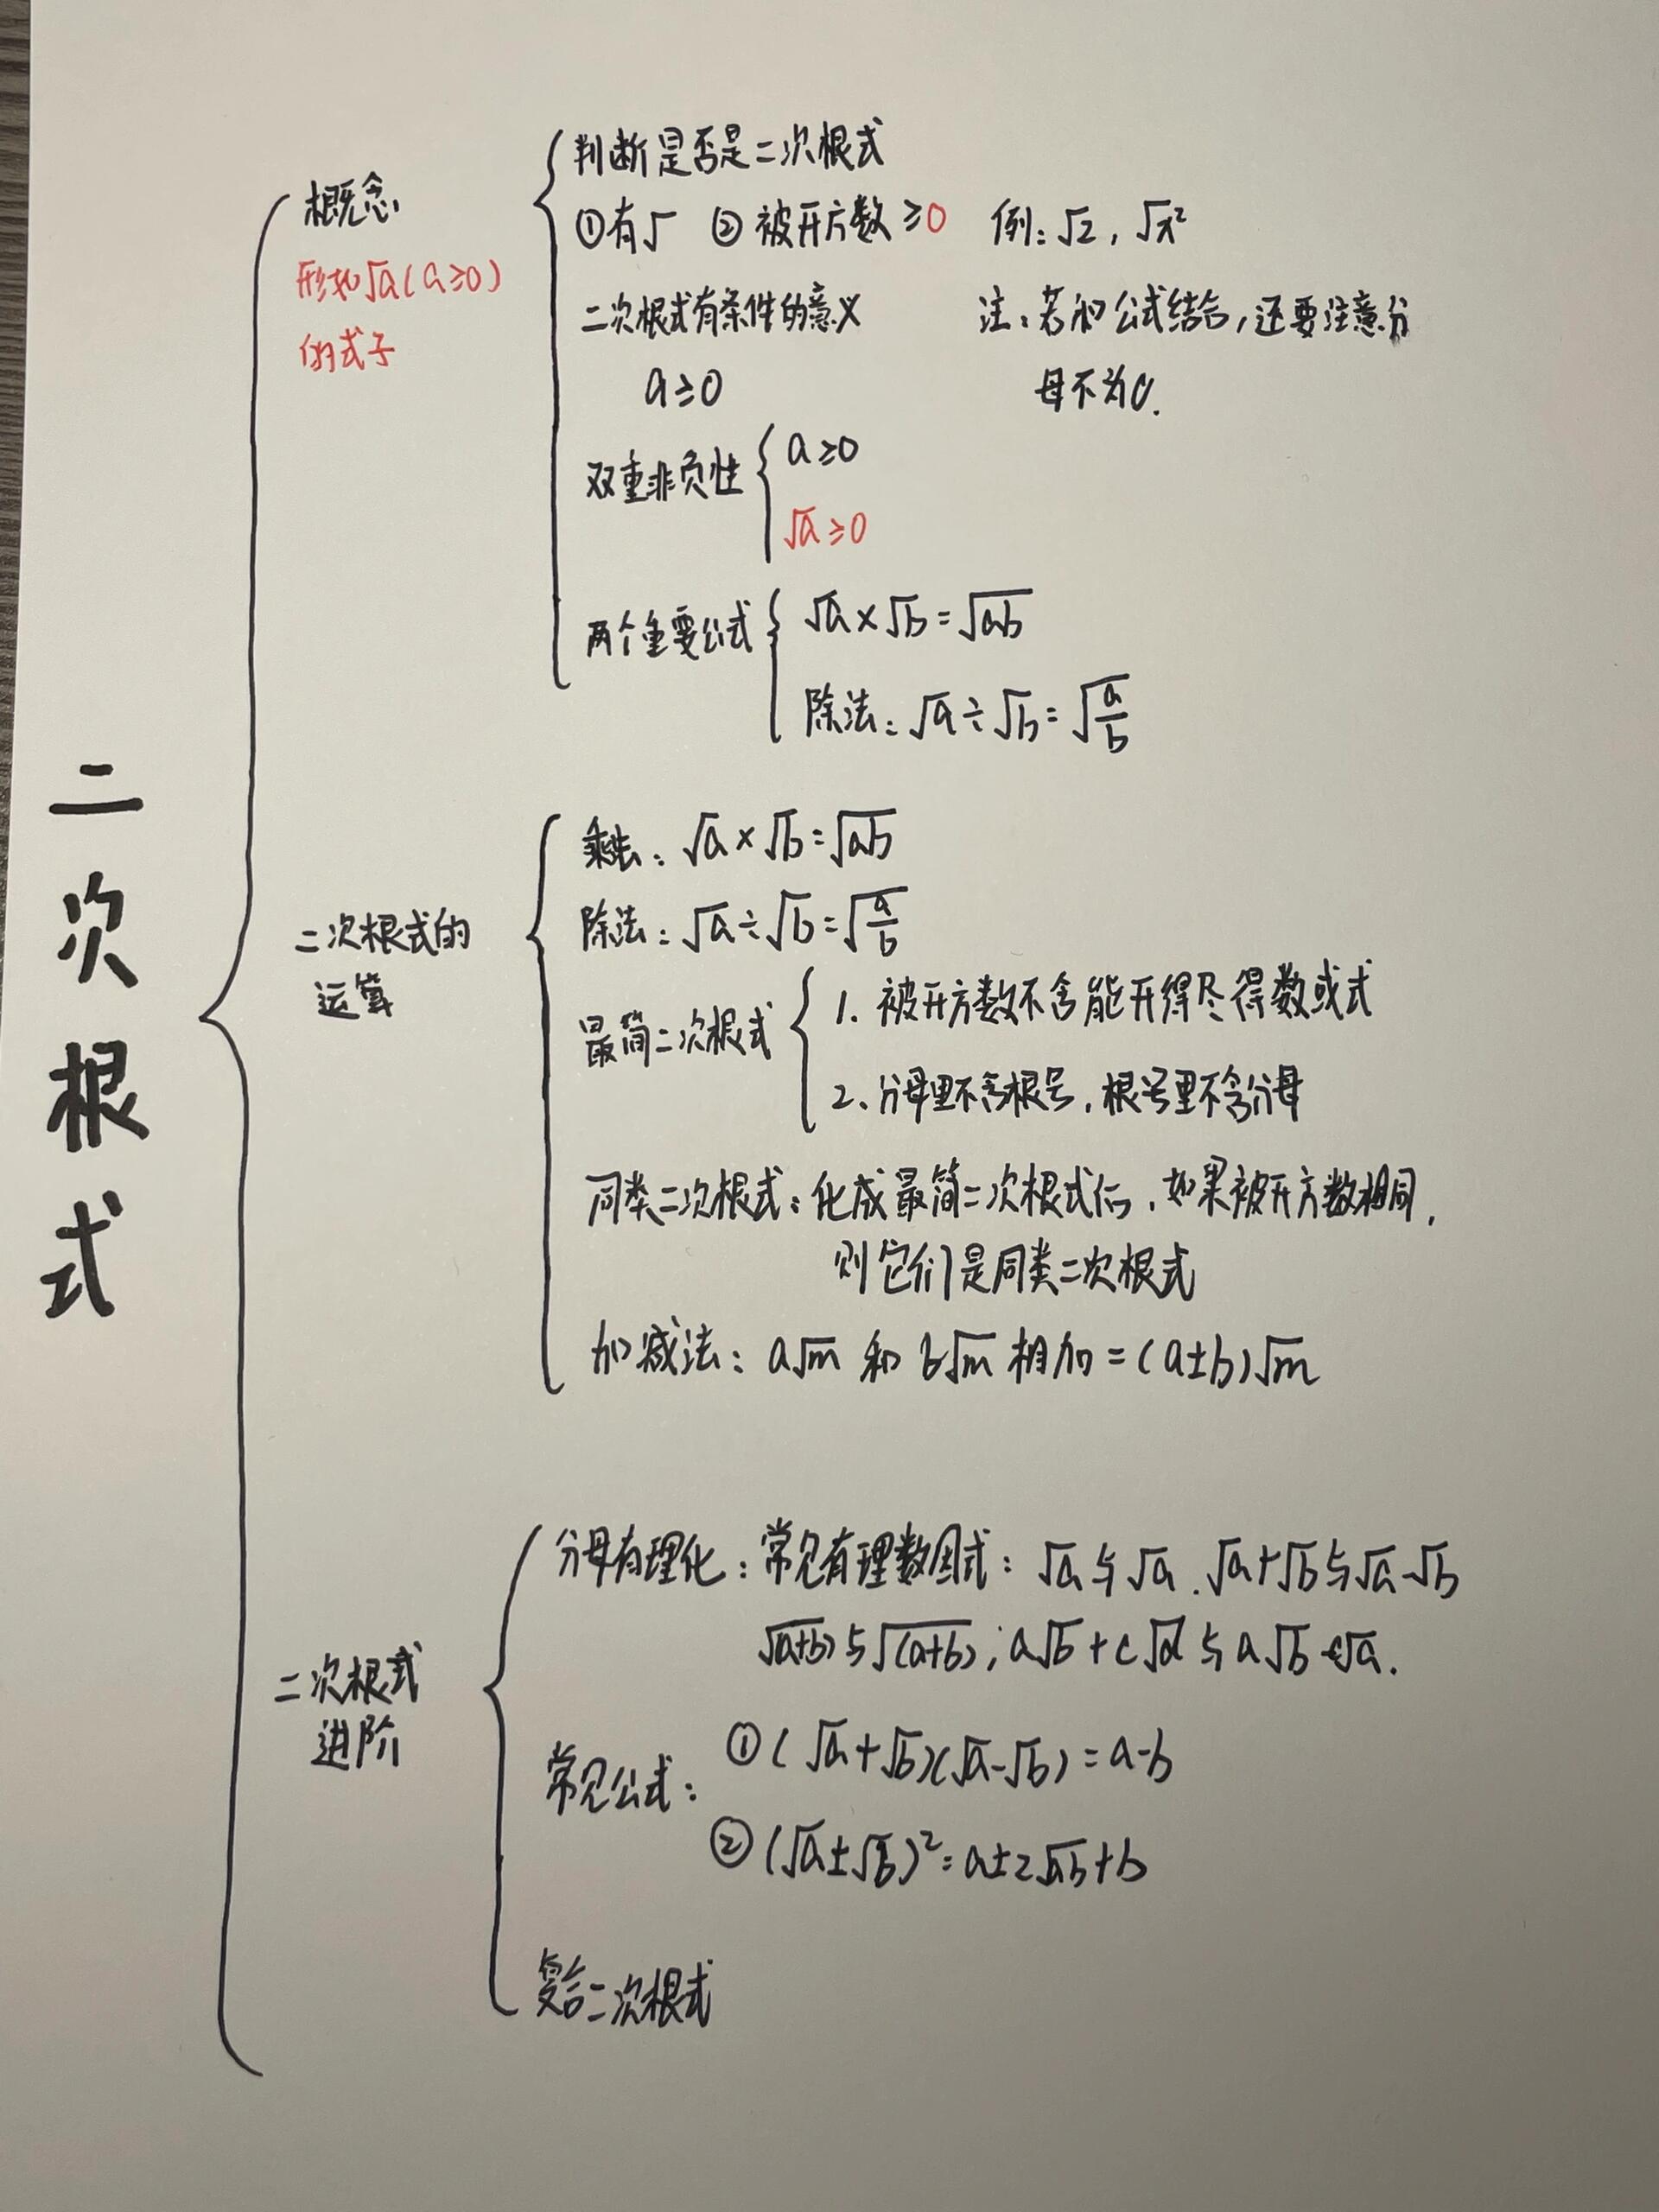 二次根式
概念
形如√a(a≥0)
的式子
判断是否是二次根式
①有√ ②被开方数≥0 例:√2,√x²
二次根式有条件的意义 注:若和公式结合,还要注意分
a≥0 母不为0.
双重非负性 a≥0
√a≥0
两个重要公式 √a×√b=√ab
除法:√a÷√b=√(a/b)
二次根式的
运算
乘法:√a×√b=√ab
除法:√a÷√b=√(a/b)
最简二次根式 1.被开方数不含能开得尽得数或式
2、分母里不含根号,根号里不含分母
同类二次根式:化成最简二次根式后,如果被开方数相同,
则它们是同类二次根式
加减法:a√m 和 b√m 相加=(a±b)√m
二次根式
进阶
分母有理化:常见有理数因式:√a与√a.√a+√b与√a-√b
√(a+b)与√(a+b);a√b+c√d与a√b-c√a.
常见公式:①(√a+√b)(√a-√b)=a-b
②(√a±√b)²=a±2√ab+b
复合二次根式